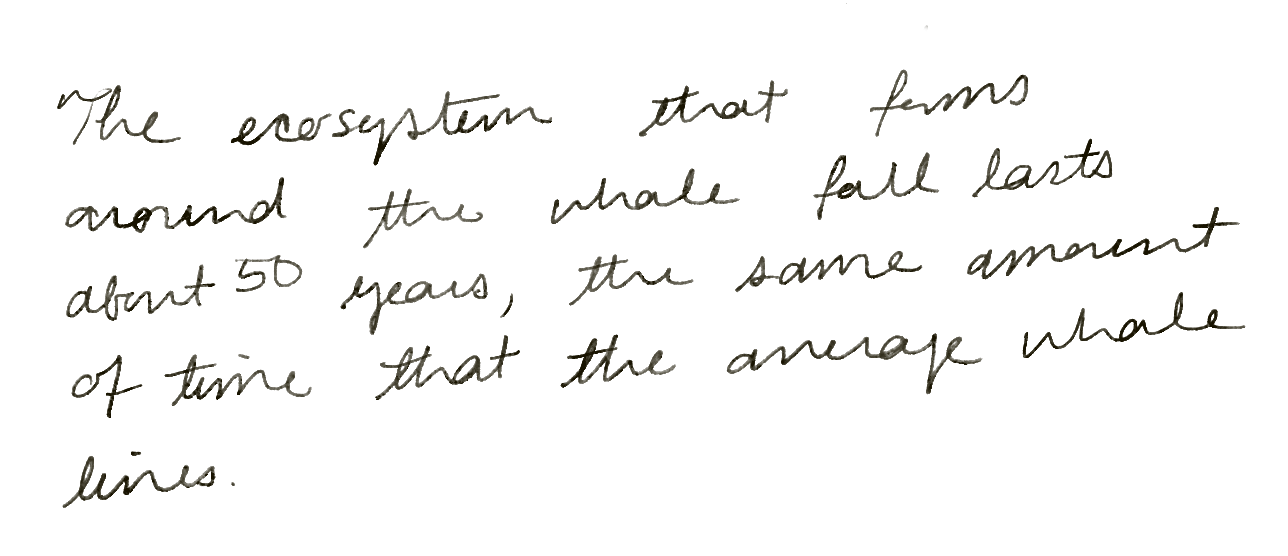 The ecosystem that forms
around the whale fall lasts
about 50 years, the same amount
of time that the average whale
lives.